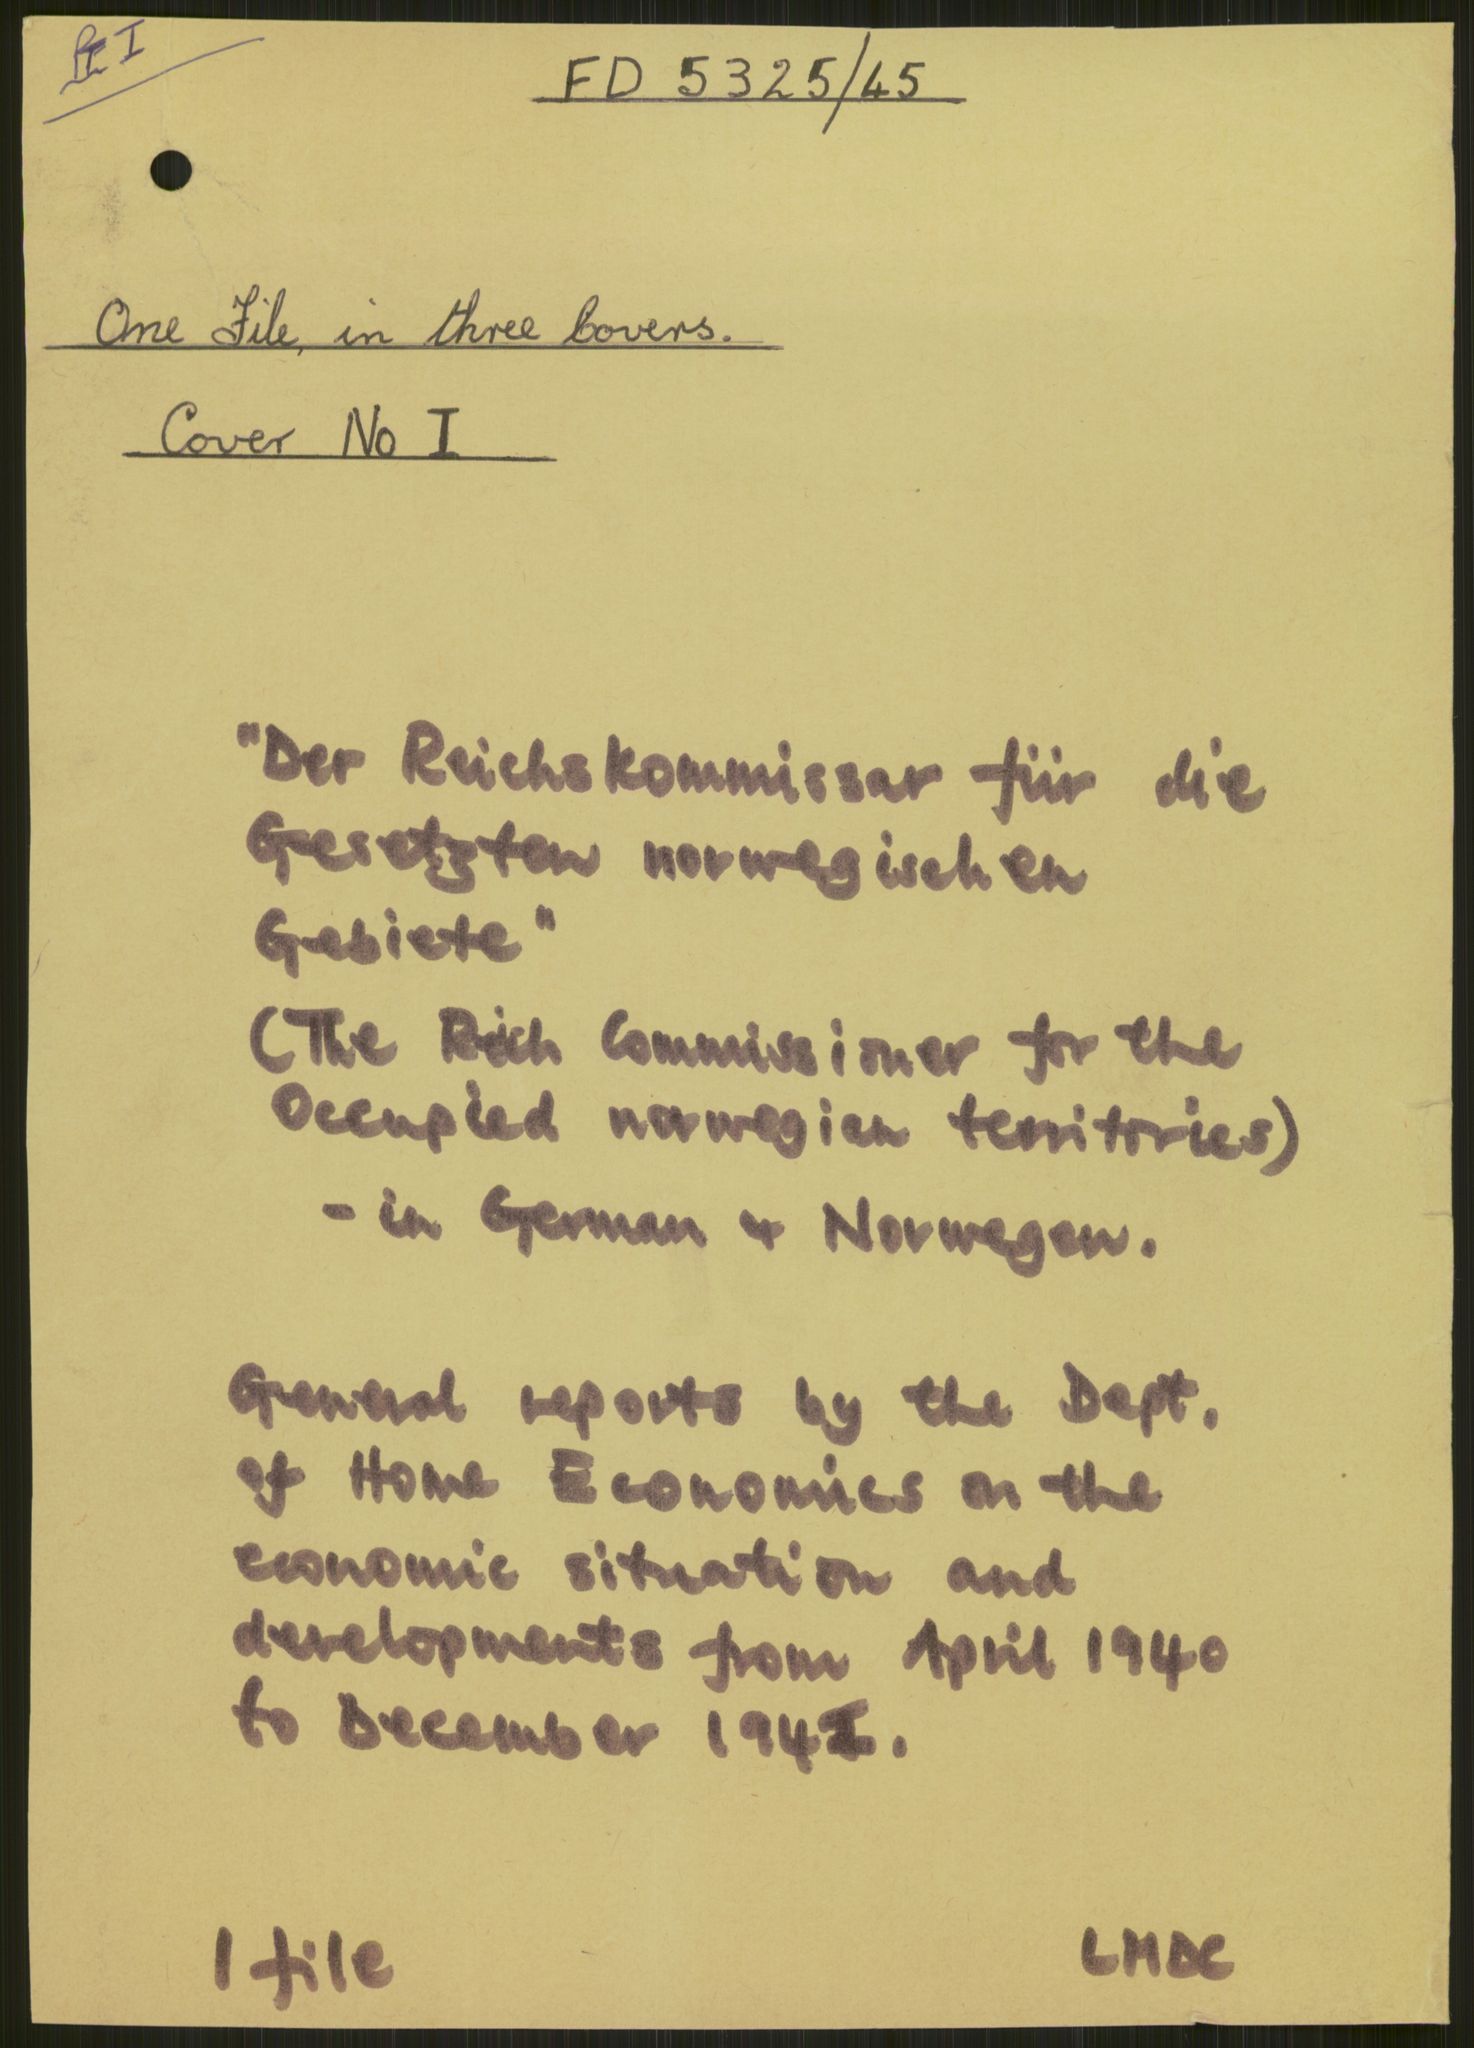 Pt I
FD 5325/45
One File, in three Covers.
Cover No I
"Der Reichskommissar für die
Gesetzten norwegischen
Gebiete"
(The Reich Commissioner for the
Occupied norwegian territories)
- in German & Norwegen.
General reports by the Dept.
of Home Economics on the
economic situation and
developments from April 1940
to December 1941.
1 file
LMDC